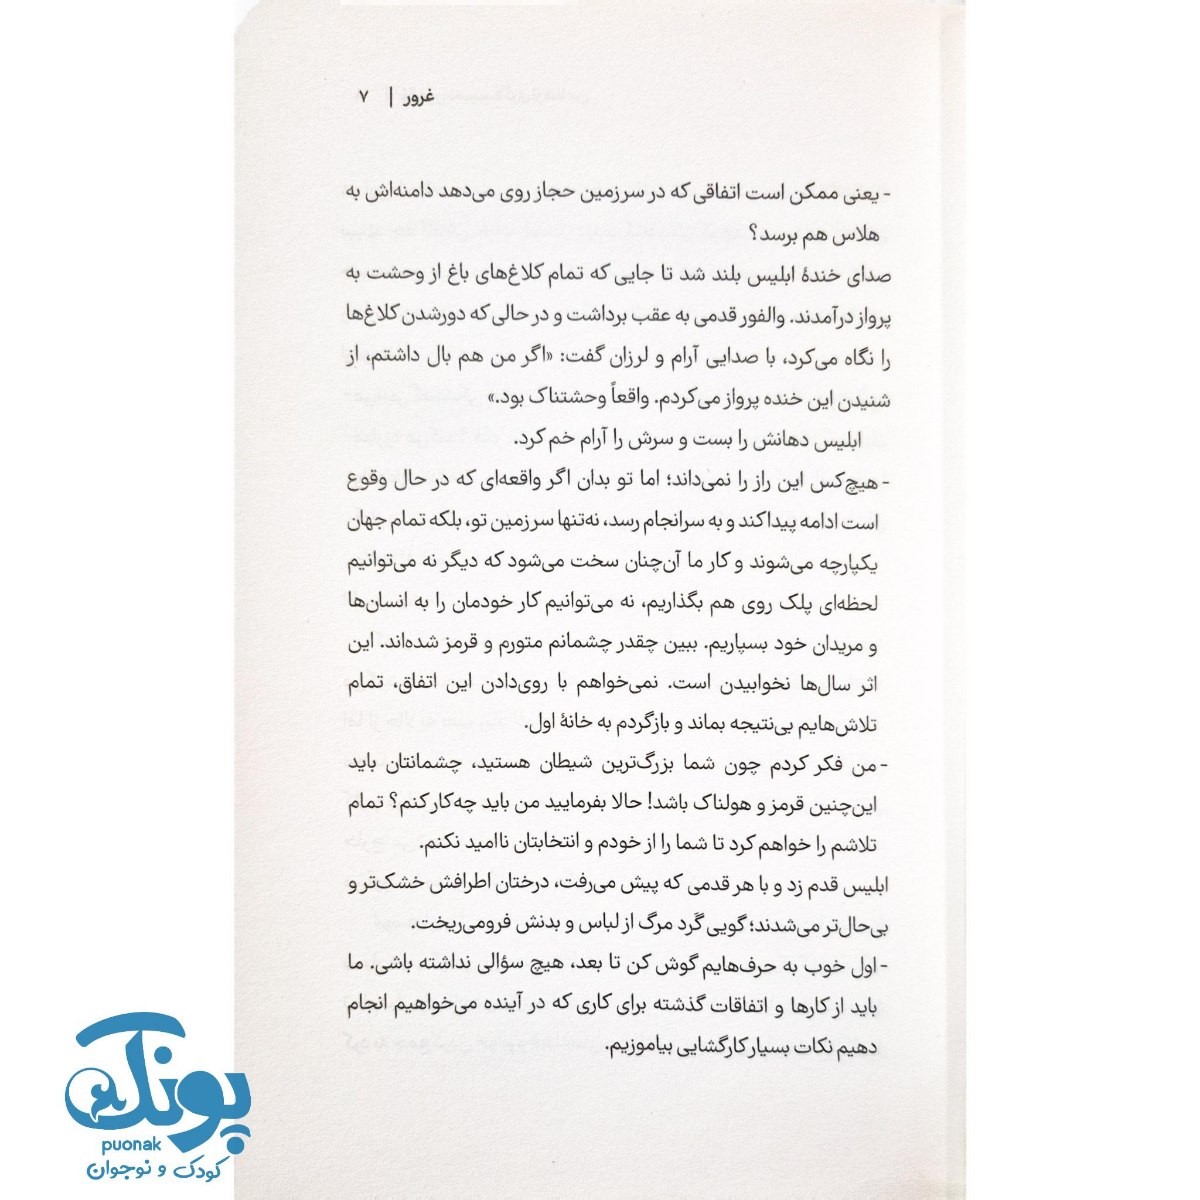 غرور | ۷
- یعنی ممکن است اتفاقی که در سرزمین حجاز روی می‌دهد دامنه‌اش به
هلاس هم برسد؟
صدای خندهٔ ابلیس بلند شد تا جایی که تمام کلاغ‌های باغ از وحشت به
پرواز درآمدند. والفور قدمی به عقب برداشت و در حالی که دورشدن کلاغ‌ها
را نگاه می‌کرد، با صدایی آرام و لرزان گفت: «اگر من هم بال داشتم، از
شنیدن این خنده پرواز می‌کردم. واقعاً وحشتناک بود.»
ابلیس دهانش را بست و سرش را آرام خم کرد.
- هیچ‌کس این راز را نمی‌داند؛ اما تو بدان اگر واقعه‌ای که در حال وقوع
است ادامه پیدا کند و به سرانجام رسد، نه‌تنها سرزمین تو، بلکه تمام جهان
یکپارچه می‌شوند و کار ما آن‌چنان سخت می‌شود که دیگر نه می‌توانیم
لحظه‌ای پلک روی هم بگذاریم، نه می‌توانیم کار خودمان را به انسان‌ها
و مریدان خود بسپاریم. ببین چقدر چشمانم متورم و قرمز شده‌اند. این
اثر سال‌ها نخوابیدن است. نمی‌خواهم با روی‌دادن این اتفاق، تمام
تلاش‌هایم بی‌نتیجه بماند و بازگردم به خانهٔ اول.
- من فکر کردم چون شما بزرگ‌ترین شیطان هستید، چشمانتان باید
این‌چنین قرمز و هولناک باشد! حالا بفرمایید من باید چه‌کار کنم؟ تمام
تلاشم را خواهم کرد تا شما را از خودم و انتخابتان ناامید نکنم.
ابلیس قدم زد و با هر قدمی که پیش می‌رفت، درختان اطرافش خشک‌تر و
بی‌حال‌تر می‌شدند؛ گویی گَرد مرگ از لباس و بدنش فرومی‌ریخت.
- اول خوب به حرف‌هایم گوش کن تا بعد، هیچ سؤالی نداشته باشی. ما
باید از کارها و اتفاقات گذشته برای کاری که در آینده می‌خواهیم انجام
دهیم نکات بسیار کارگشایی بیاموزیم.
پونک
puonak
کودک و نوجوان